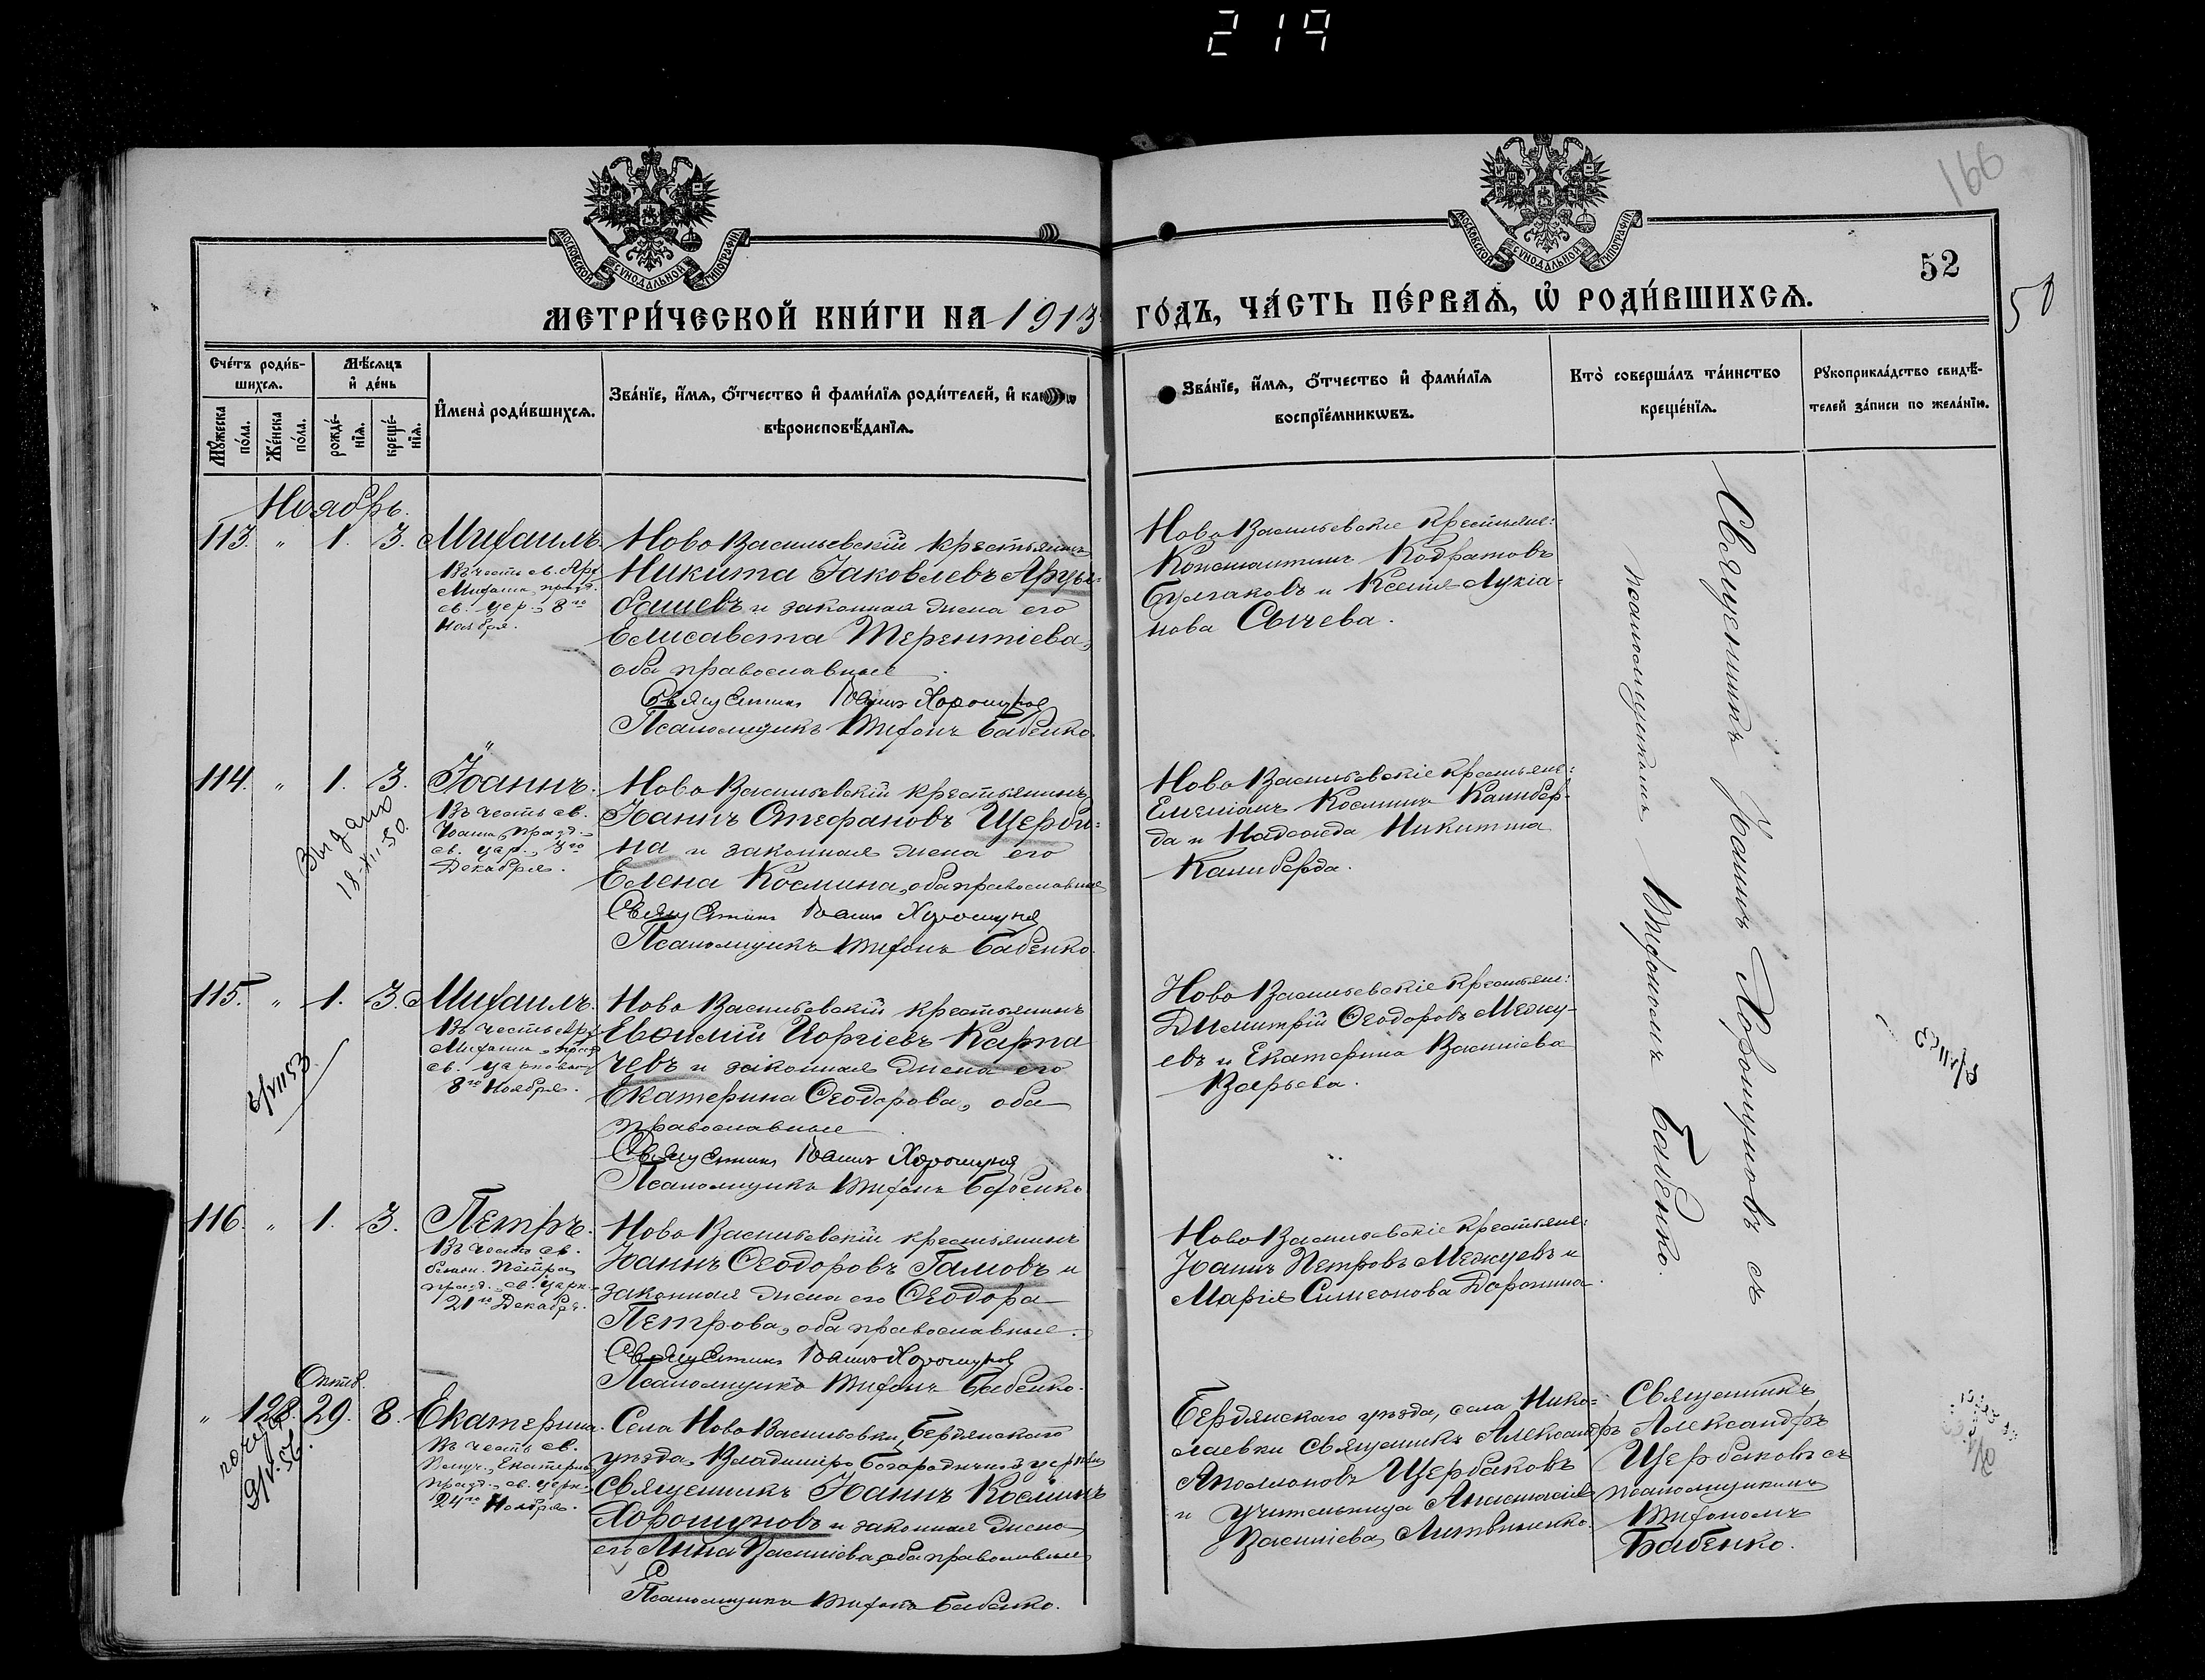 219
166
52
50
МОСКОВСКОЙ СУНОДАЛЬНОЙ ТИПОГРАФІИ
МОСКОВСКОЙ СУНОДАЛЬНОЙ ТИПОГРАФІИ
МЕТРИ́ЧЕСКОЙ КНИ́ГИ НА 1913 ГО́ДЪ, ЧА́СТЬ ПЕ́РВАѦ, Ѡ҆ РОДИ́ВШИХСѦ.
Сче́тъ роди́в-
шихсѧ.
Мꙋ́жеска
по́ла.
Же́нска
по́ла.
Мѣ́сѧцъ
и҆ де́нь
рожде́-
нїѧ.
креще́-
нїѧ.
И҆мена̀ роди́вшихсѧ.
Зва́нїе, и҆́мѧ, о҆́тчество и҆ фами́лїѧ роди́телей, и҆
вѣроисповѣ́данїѧ.
Зва́нїе, и҆́мѧ, о҆́тчество и҆ фами́лїѧ
воспрїе́мникѡвъ.
Кто̀ соверша́лъ та́инство
креще́нїѧ.
Рꙋкоприкла́дство свидѣ́-
телей за́писи по жела́нїю.
Ноябрь.
113. " 1. 3. Михаилъ.
Въ честь св. Арх.
Михаила, празд.
св. цер. 8го
Ноября.
Ново Васильевскій крестьянинъ
Никита Іаковлевъ Аргы-
башевъ и законная жена его
Елисавета Терентіева,
оба православные
Священникъ Іоаннъ Хорошуновъ
Псаломщикъ Тихонъ Бабенко.
Ново Васильевскіе крестьяне:
Константинъ Кодратовъ
Булгаковъ и Ксенія Лукіа-
нова Сычева.
114. " 1. 3. Іоаннъ.
Въ честь св.
Іоанна, празд.
св. цер.
Декабря.
Выдано
18-XII 50.
Ново Васильевскій крестьянинъ
Іоаннъ Стефановъ Щерби-
на и законная жена его
Елена Космина, оба православные
Священникъ Іоаннъ Хорошуновъ
Псаломщикъ Тихонъ Бабенко.
Ново Васильевскіе крестьяне:
Емеліанъ Косминъ Калибер-
да и Надежда Никитина
Калиберда.
115. " 1. 3. Михаилъ.
Въ честь Арх.
Михаила, празд.
св. церковью
8го Ноября.
Ново Васильевскій крестьянинъ
Евѳимій Іоргіевъ Карпа
чевъ и законная жена его
Екатерина Ѳеодорова, оба
православные
Священникъ Іоаннъ Хорошуновъ
Псаломщикъ Тихонъ Бабенко
Ново Васильевскіе крестьяне:
Димитрій Ѳеодоровъ Межу-
евъ и Екатерина Василіева
116. " 1. 3. Петръ.
Въ честь св.
Петра,
празд. св. церк.
21го Декабря.
Ново Васильевскій крестьянинъ
Іоаннъ Ѳеодоровъ Гамовъ и
законная жена его Ѳеодора
Петрова, оба православные.
Священникъ Іоаннъ Хорошуновъ
Псаломщикъ Тихонъ Бабенко.
Ново Васильевскіе крестьяне:
Іоаннъ Петровъ Межуевъ и
Марія Симеонова Доронина.
Священникъ Іоаннъ Хорошуновъ съ
псаломщикомъ Тихономъ Бабенко.
Октяб.
" 128. 29. 8. Екатерина.
Въ честь св.
Екатерины
празд. св. церк.
24го Ноября.
Села Ново Васильевки, Бердянскаго
уѣзда, Владиміро Богородичной церкви
Священникъ Іоаннъ Косминъ
Хорошуновъ и законная жена
его Анна Василіева, оба православные
Псаломщикъ Тихонъ Бабенко.
Бердянскаго уѣзда, села Нико-
лаевки Священникъ Александръ
Аполлоновъ Щербаковъ
и учительница Анастасія
Василіева Литвиненко.
Священникъ
Александръ
Щербаковъ съ
псаломщикомъ
Тихономъ
Бабенко.